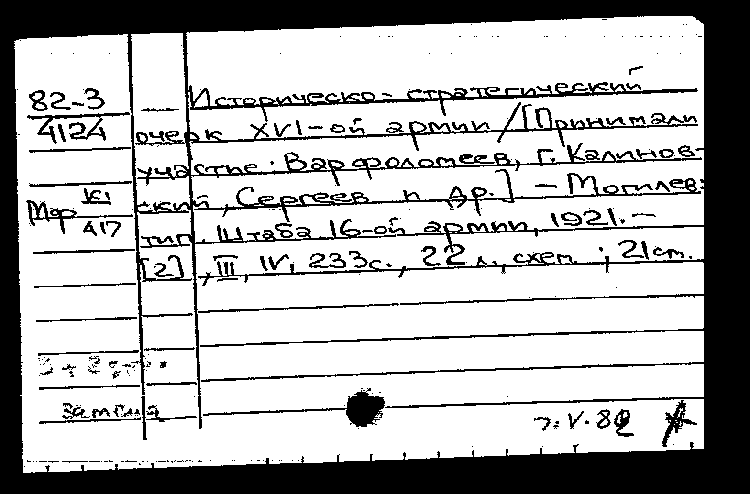 82-3
4124
Историческо-стратегический
очерк XVI-ой армии / [Принимали
участие: Варфоломеев, Г. Калинов-
ский, Сергеев и др.] – Могилев:
тип. Штаба 16-ой армии, 1921. –
[2], III, IV, 233с., 22 л., схем. ; 21см.
Мор К1
417
замена
V.82